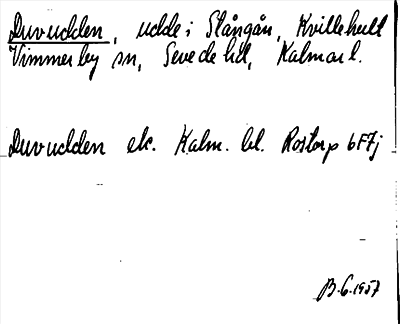 Duvudden, udde i Stångån, Kvillehult
Vimmerby sn, Sevede hd, Kalmar l.
Duvudden ek. Kalm. bl. Rostorp 6F7j
B.G. 1957